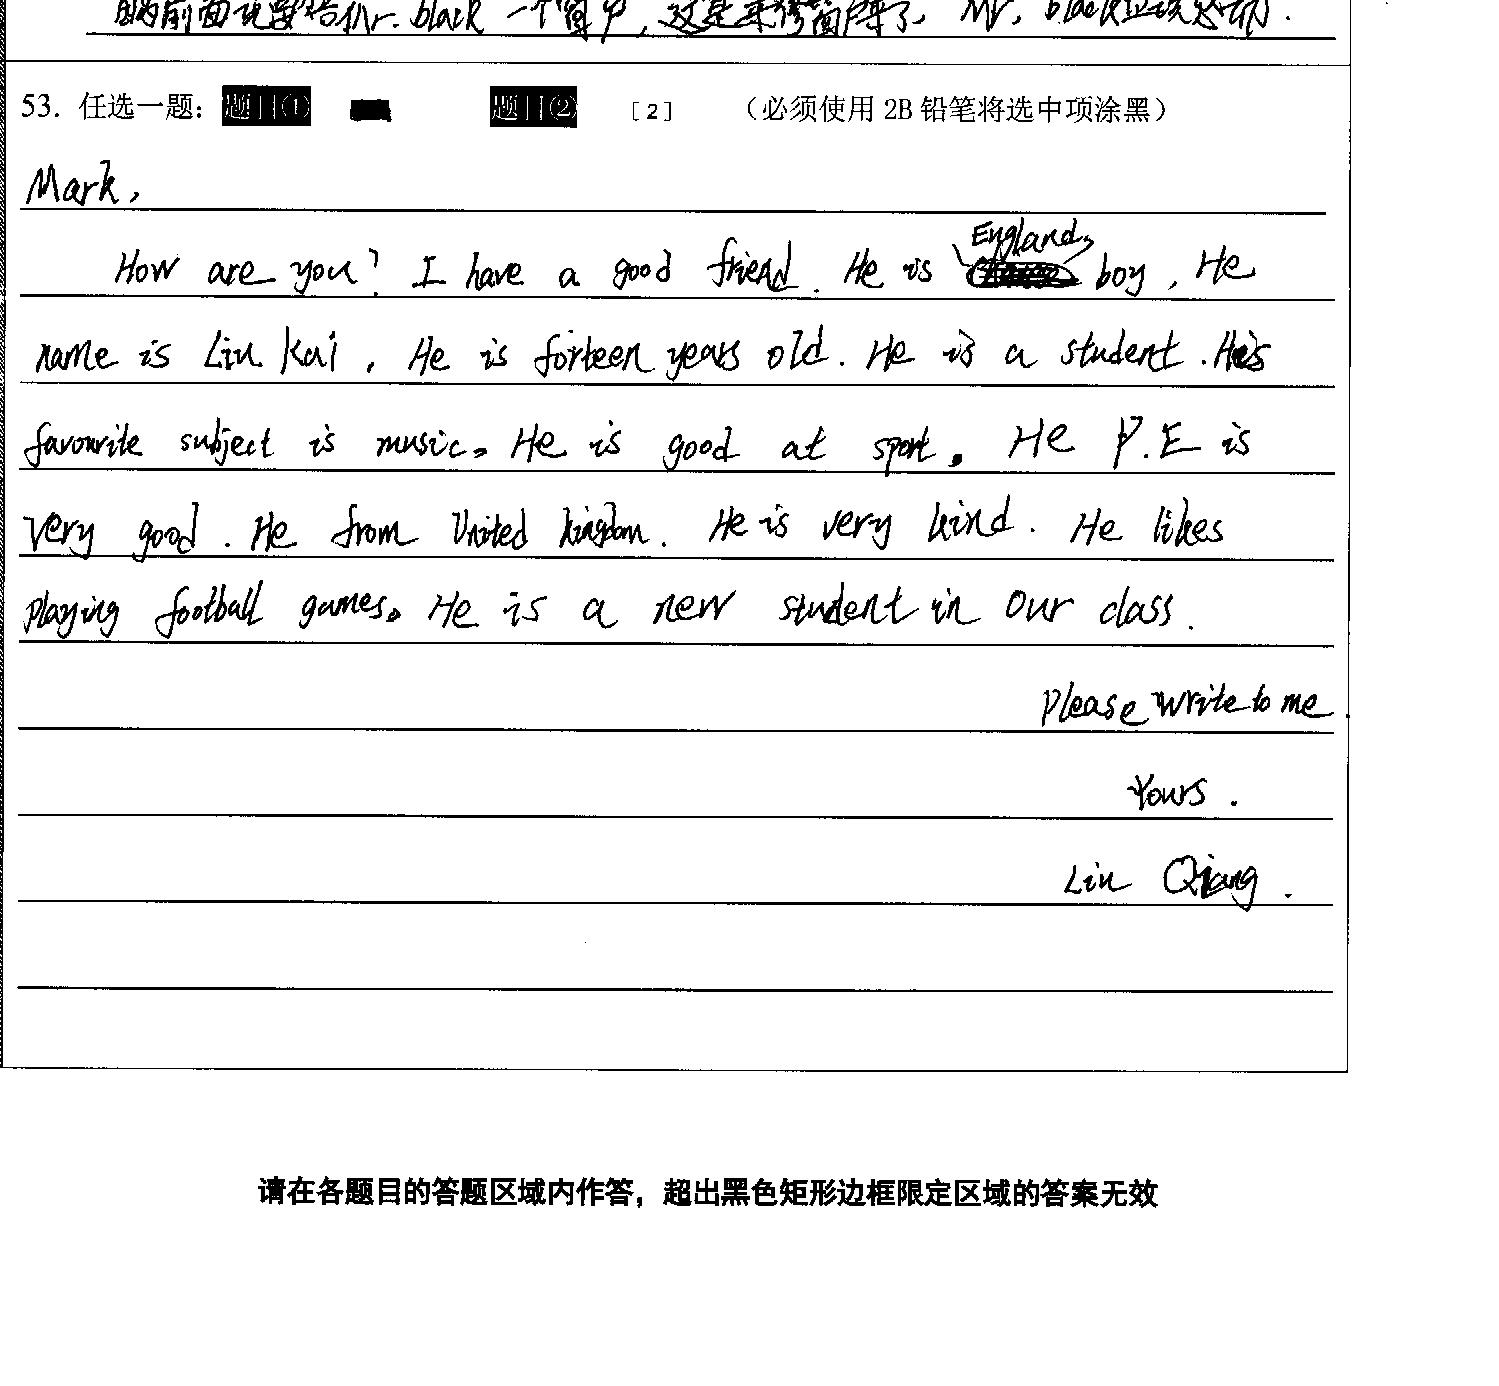 的前面说要给Mr. black 一个窗户, 这是来修窗户来了, Mr. black应该感动.
53. 任选一题: 题目① 题目② [2] (必须使用 2B 铅笔将选中项涂黑)
Mark,
How are you? I have a good friend. He is England boy. He
name is Liu Kai. He is forteen years old. He is a student. His
favourite subject is music. He is good at sport. He P.E is
very good. He from United kingdom. He is very kind. He likes
playing football games. He is a new student in our class.
Please write to me.
Yours.
Liu Qiang.
请在各题目的答题区域内作答，超出黑色矩形边框限定区域的答案无效